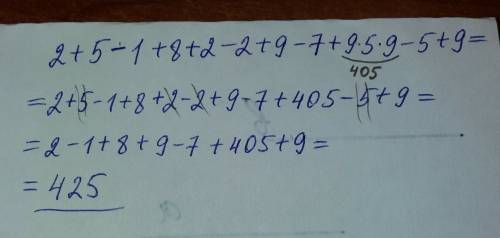 2+5-1+8+2-2+9-7+9·5·9-5+9=
405
=2+5-1+8+2-2+9-7+405-5+9=
=2-1+8+9-7+405+9=
=425